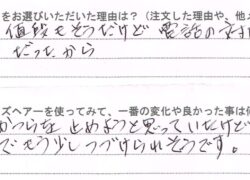 をお選びいただいた理由は？（注文した理由や、他
値段もそうだけど 電話の対
だったから
ズヘアーを使ってみて、一番の変化や良かった事は
かつらを止めようと思っていたけど
でもう少しつづけられそうです。